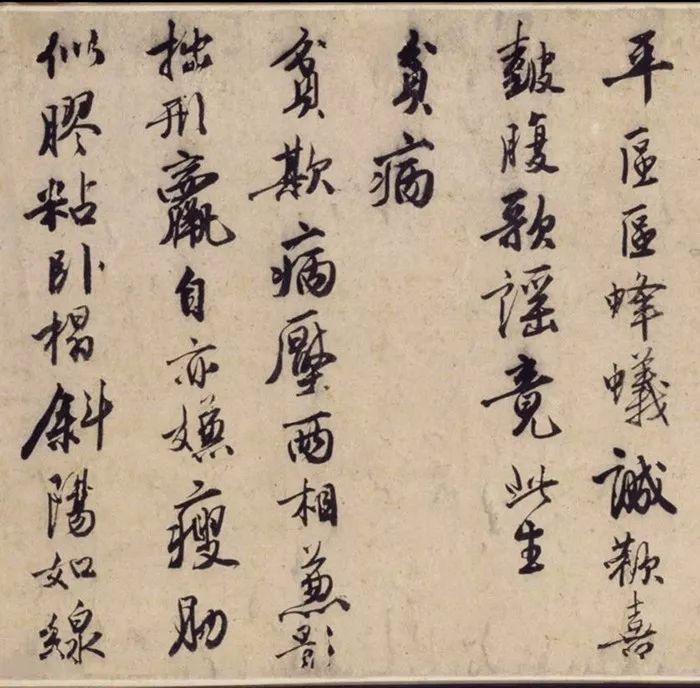 平區區蜂蟻誠歡喜
皷腹歌謡竟此生
貧病
貧欺病壓兩相兼影
拙形羸自亦嫌瘦肋
似膠粘卧榻斜陽如線